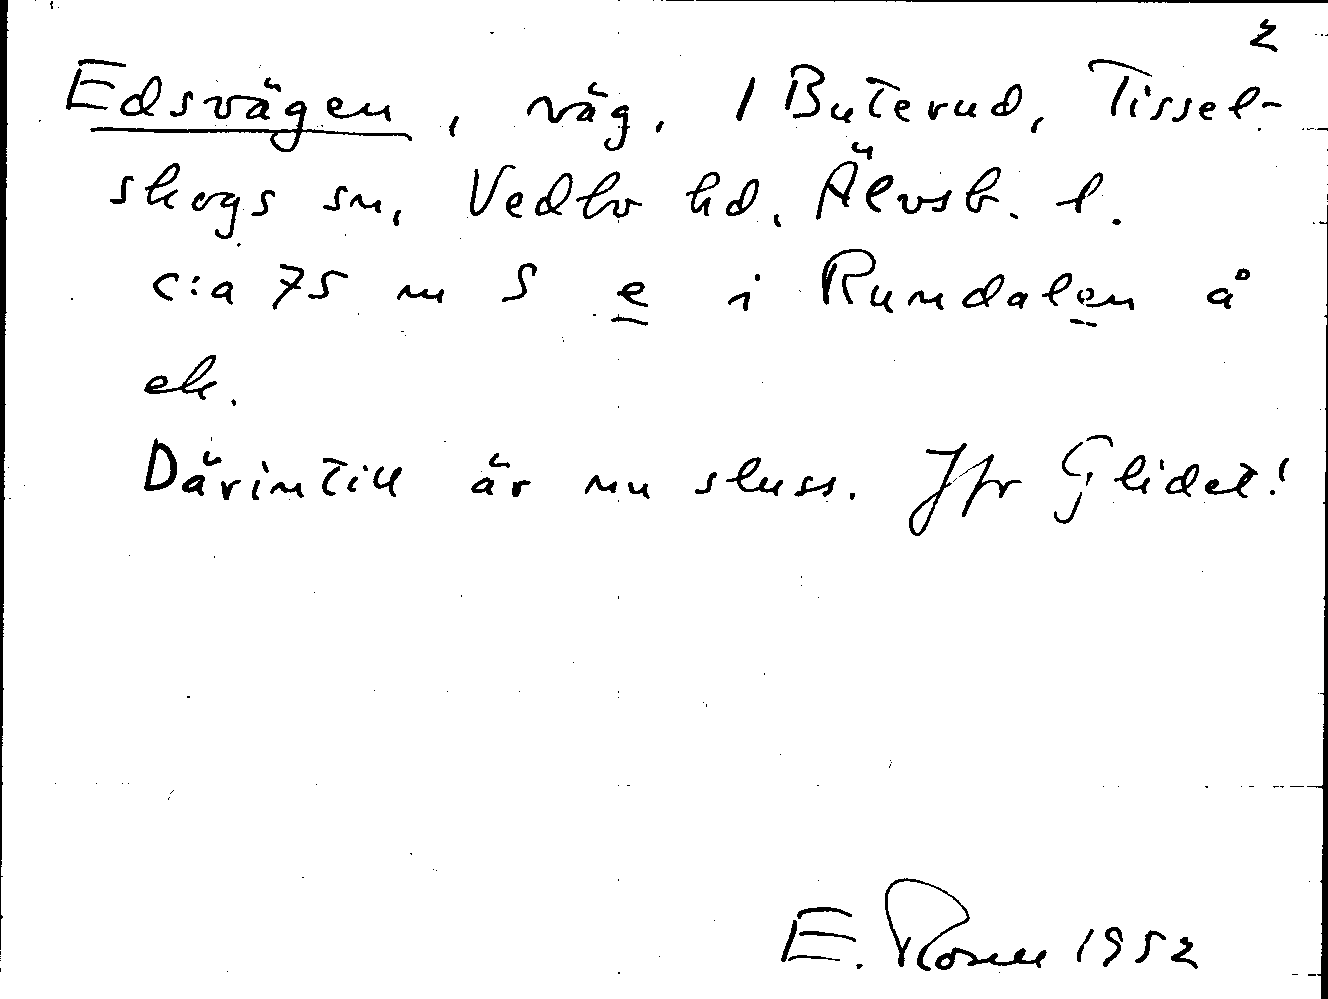 2
Edsvägen, väg. 1 Buterud, Tissel-
skogs sn, Vedbo hd, Älvsb. l.
c:a 75 m S e i Rundalen å
ek.
Därintill är nu sluss. Jfr Glidet!
E. Rosell 1952